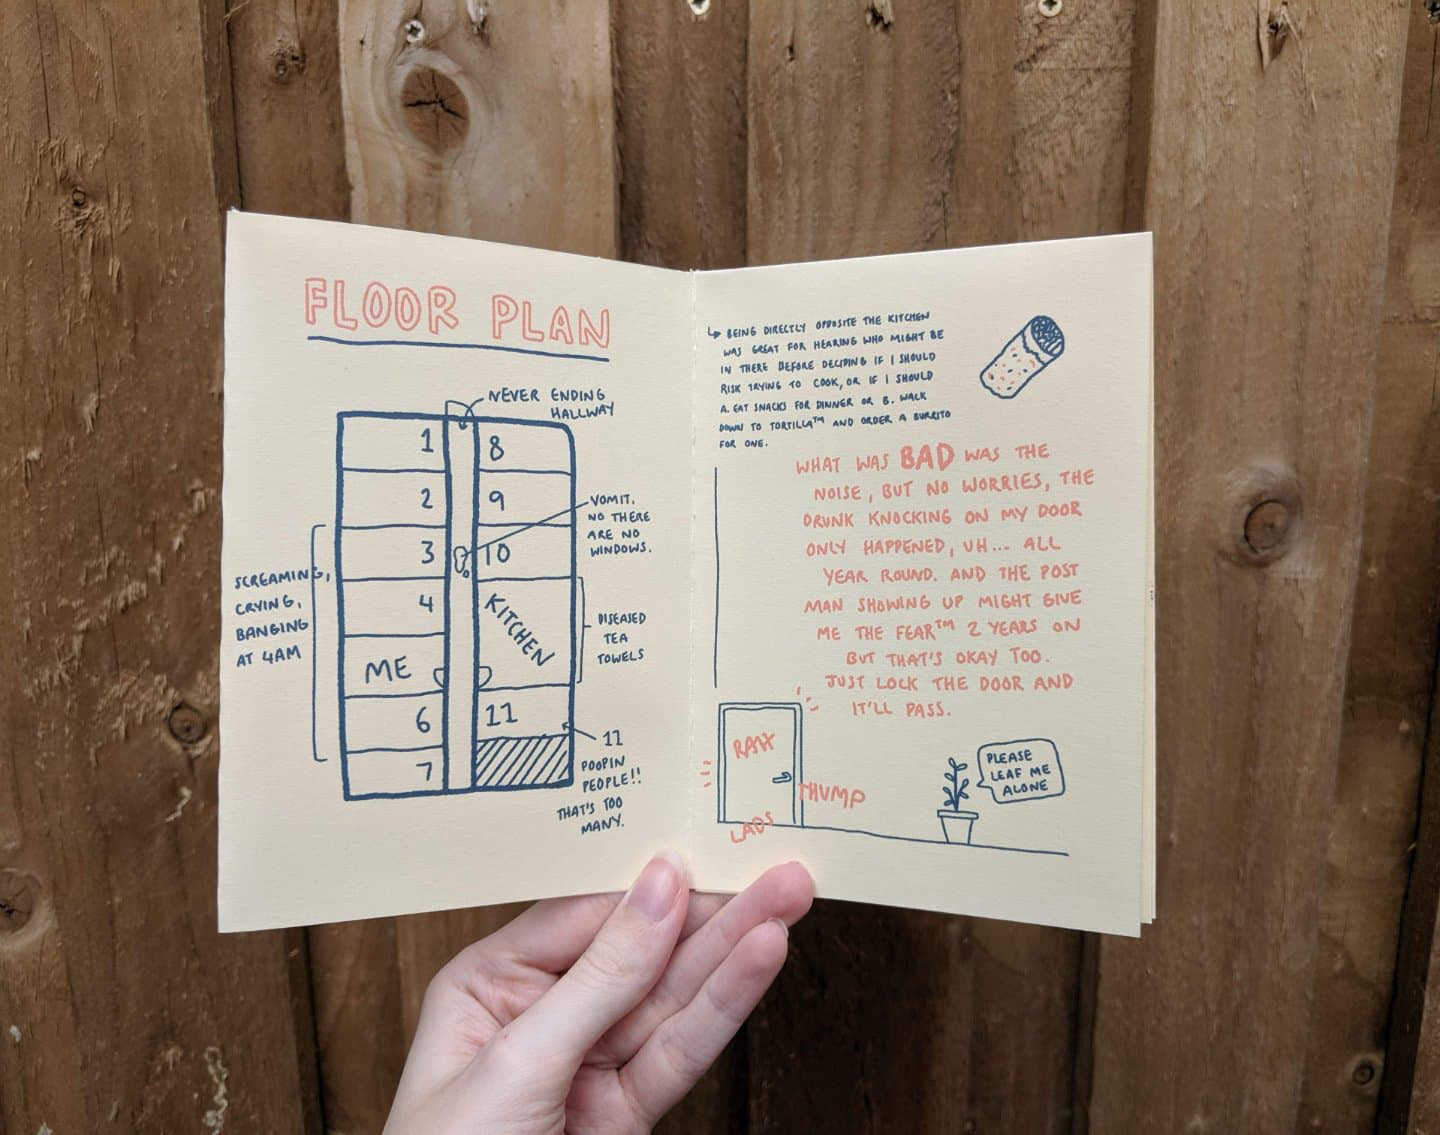 FLOOR PLAN
NEVER ENDING
HALLWAY
1
8
2
9
3
10
4
KITCHEN
ME
6
11
7
VOMIT.
NO THERE
ARE NO
WINDOWS.
SCREAMING,
CRYING,
BANGING
AT 4AM
DISEASED
TEA
TOWELS
11
POOPIN
PEOPLE!!
THAT'S TOO
MANY.
BEING DIRECTLY OPPOSITE THE KITCHEN
WAS GREAT FOR HEARING WHO MIGHT BE
IN THERE BEFORE DECIDING IF I SHOULD
RISK TRYING TO COOK, OR IF I SHOULD
A. EAT SNACKS FOR DINNER OR B. WALK
DOWN TO TORTILLA™ AND ORDER A BURRITO
FOR ONE.
WHAT WAS BAD WAS THE
NOISE, BUT NO WORRIES, THE
DRUNK KNOCKING ON MY DOOR
ONLY HAPPENED, UH... ALL
YEAR ROUND. AND THE POST
MAN SHOWING UP MIGHT GIVE
ME THE FEAR™ 2 YEARS ON
BUT THAT'S OKAY TOO.
JUST LOCK THE DOOR AND
IT'LL PASS.
THUMP
LADS
PLEASE
LEAF ME
ALONE